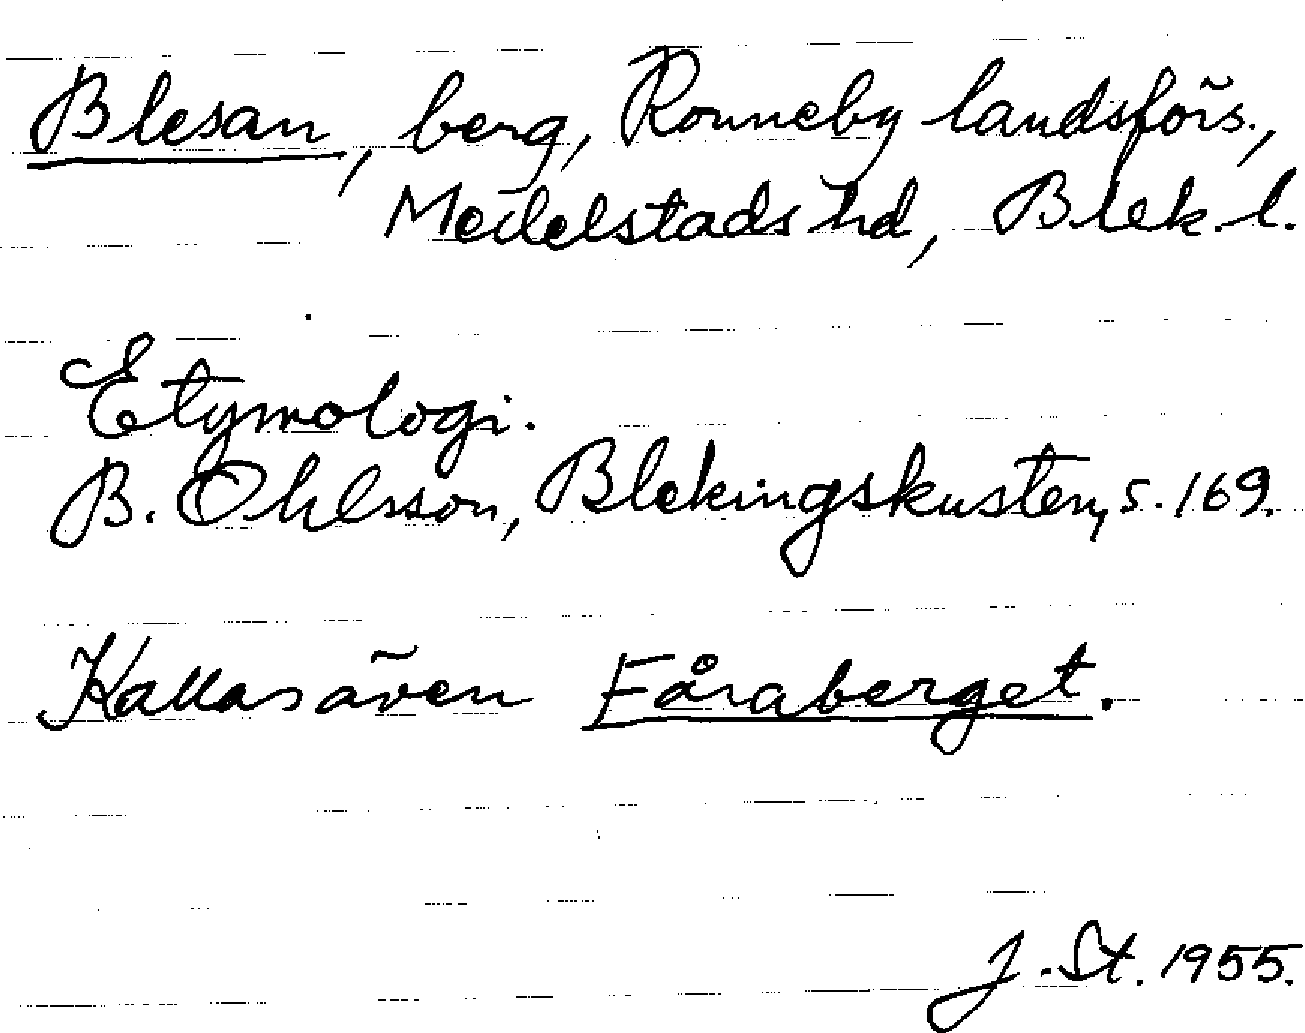 Blesan, berg, Ronneby landsförs.,
Medelstads hd, Blek. l.
Etymologi.
B. Ohlsson, Blekingskusten, s. 169.
Kallas även Fåraberget.
J. St. 1955.